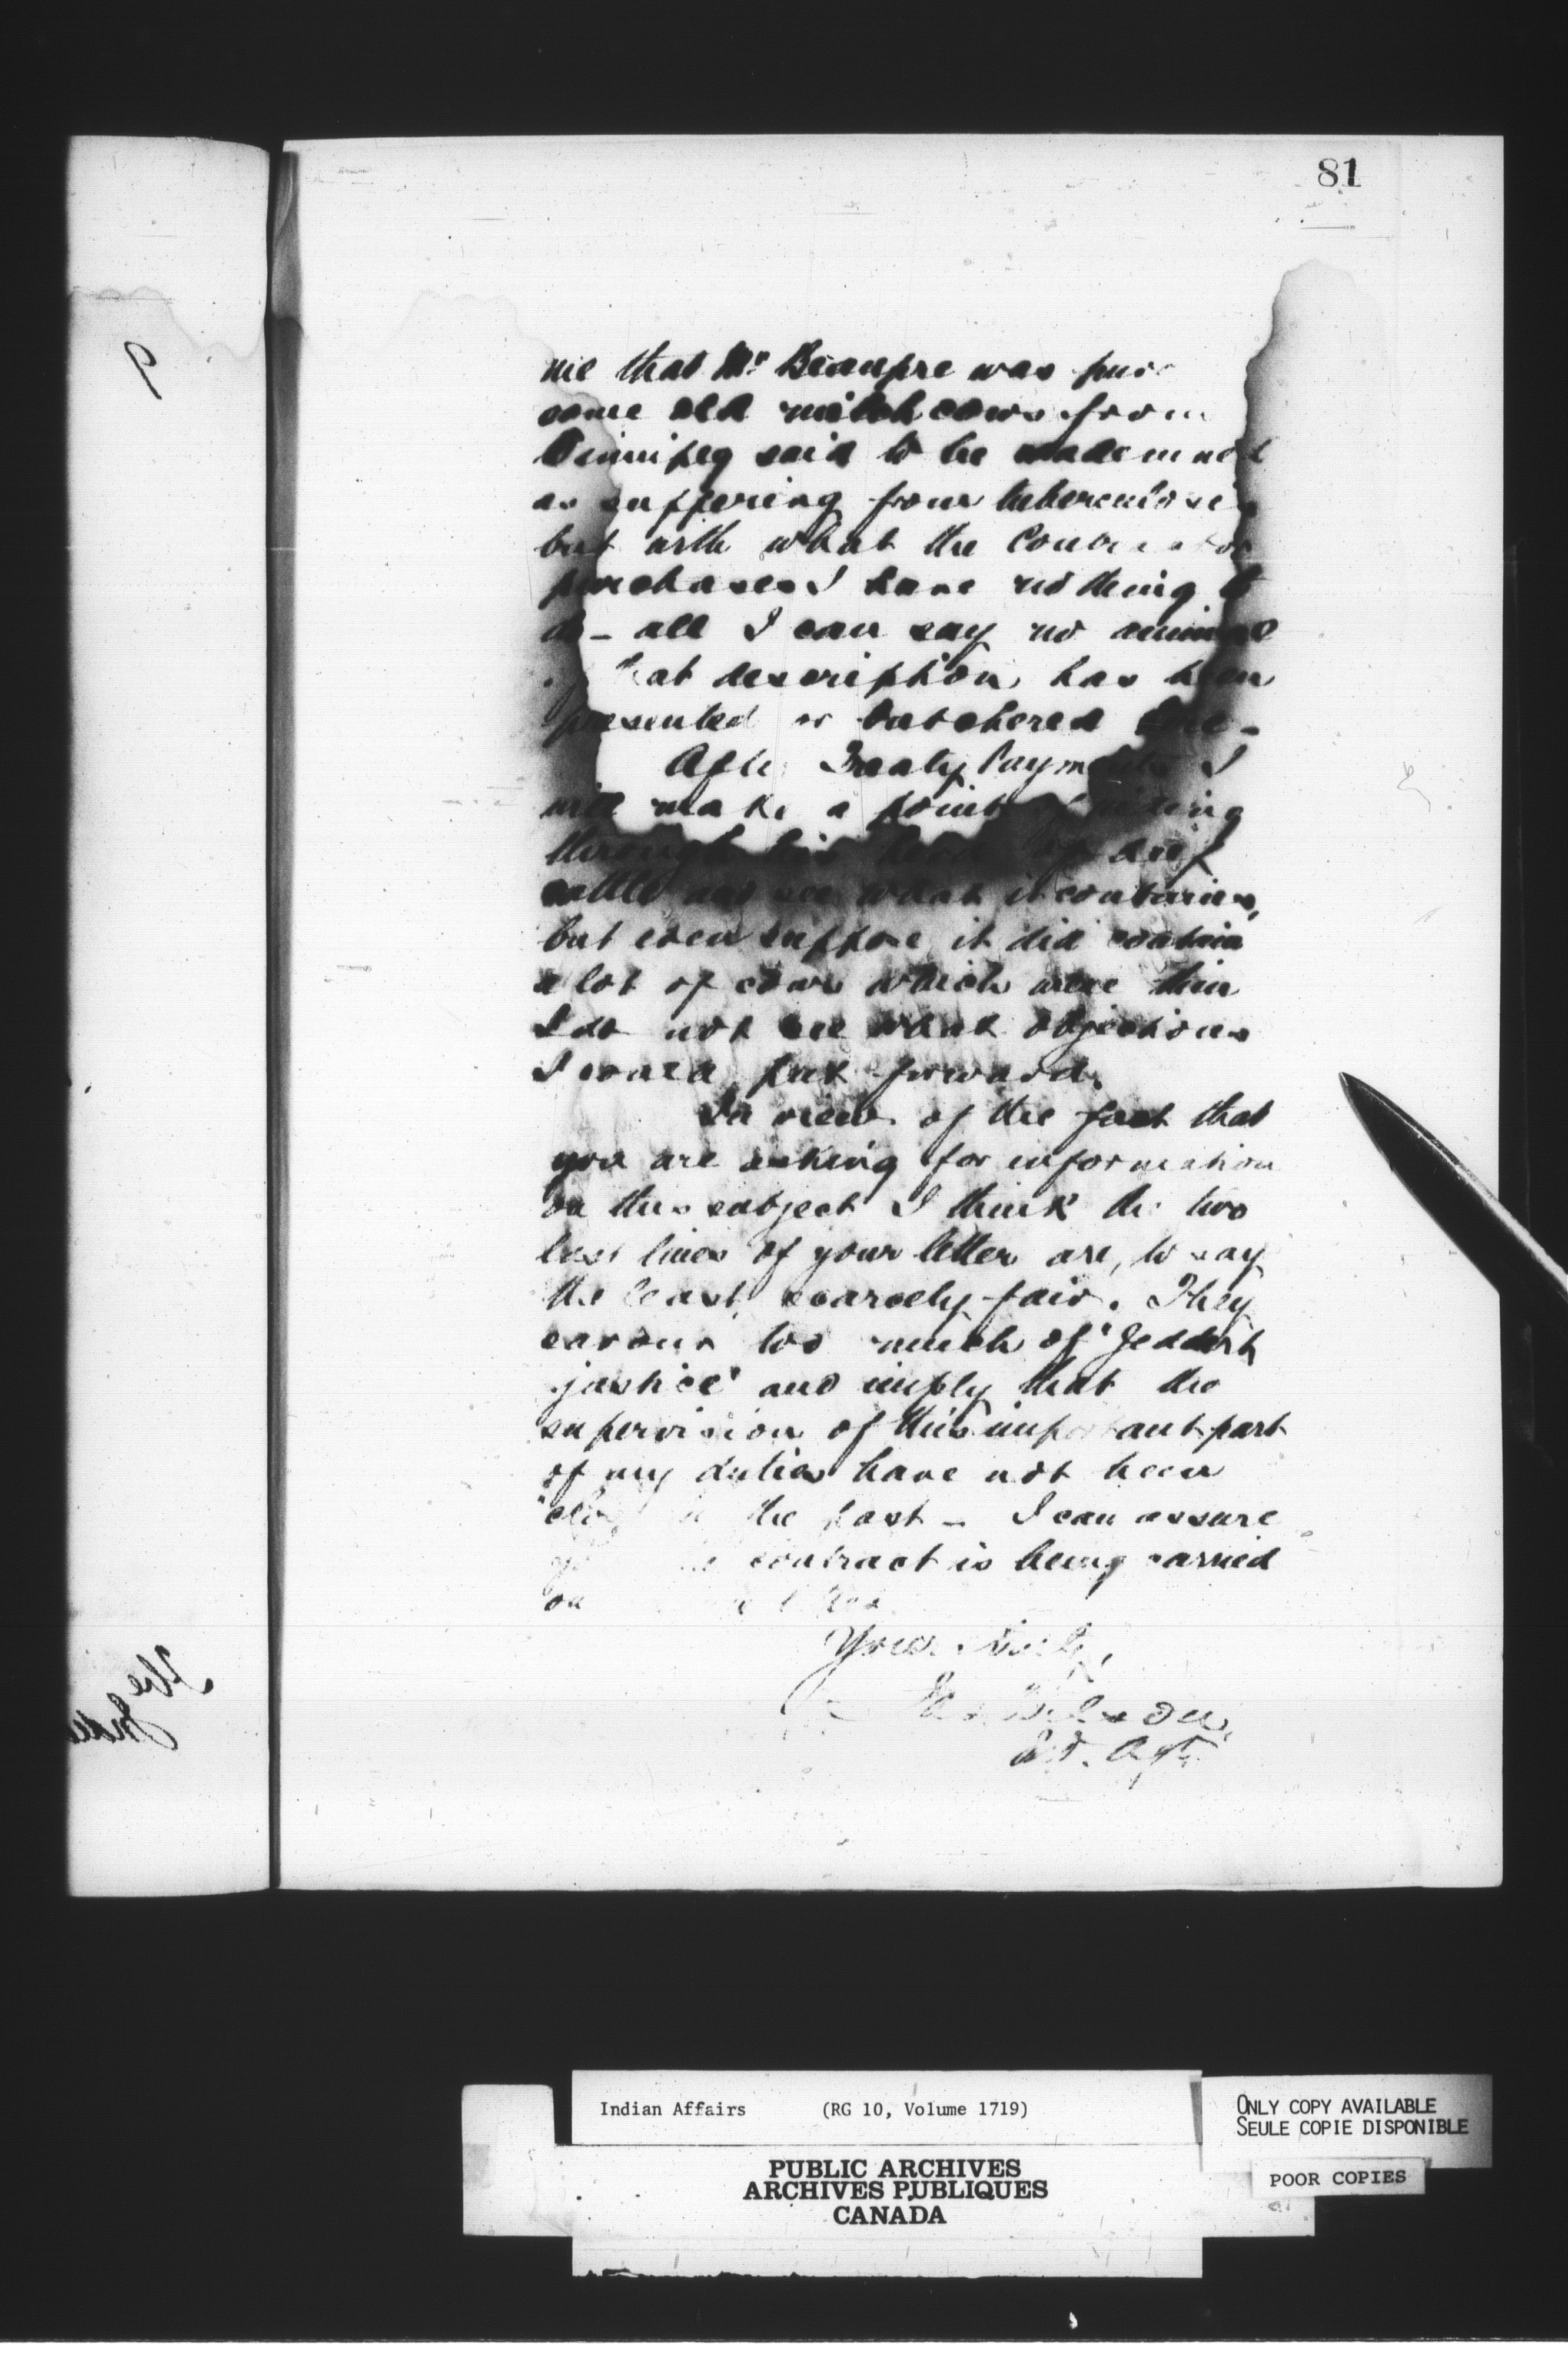 81
me that Mr Beaupre was
some old milch cows from
Winnipeg said to be
as suffering from tuberculosis
but with what the Contractor
purchases I have nothing to
do - all I can say no animal
that description has been
presented or butchered here -
After Treaty Payments I
will make a point of riding
through his herd of beef
cattle and see what it contains,
but even suppose it did contain
a lot of cows which were thin
I do not see what objections
I could put forward.
In view of the fact that
you are asking for information
on this subject I think the two
last lines of your letter are, to say
the least, scarcely fair. They
savour too much of "Jeddart
justice" and imply that the
supervision of this important part
of my duties have not been
the past - I can assure
contract is being carried
on
Yours truly,
Wilson
Ind. Agt.
The
Indian Affairs (RG 10, Volume 1719)
PUBLIC ARCHIVES
ARCHIVES PUBLIQUES
CANADA
ONLY COPY AVAILABLE
SEULE COPIE DISPONIBLE
POOR COPIES